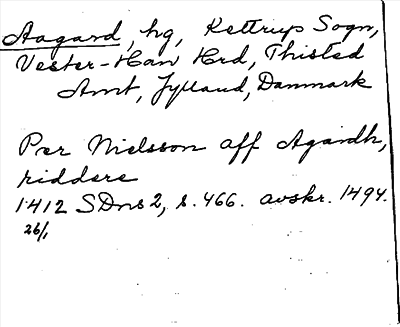 Aagard, hg, Kettrup Sogn,
Vester-Han Hrd, Thisted
Amt, Jylland, Danmark
Pær Nielsson aff Agardh,
riddere
1412 SDns 2, s. 466. avskr. 1494.
26/1